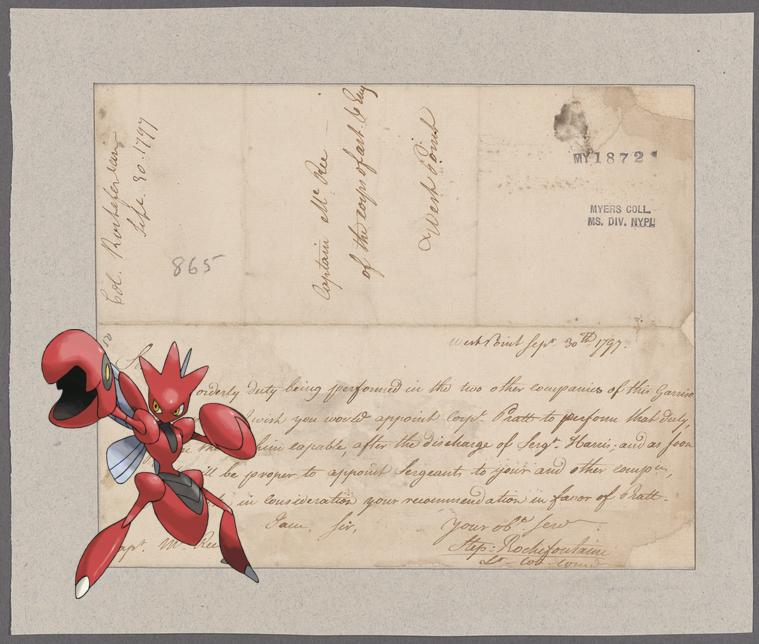 Col. Rochefontaine
Sepr. 30. 1797
865
Captain Mc Ree
of the corps of art. & Eng
West Point
MY 1872
MYERS COLL.
MS. DIV. NYPL
West Point Sepr. 30th 1797.
orderly duty being performed in the two other companies of this Garriso
wish you would appoint Corpl. Pratt to perform that duty,
him capable, after the discharge of Sergt. Harris; and as soon
be proper to appoint Sergeants to your and other compns,
in consideration your recommendation in favor of Pratt.
I am, Sir,
Your obt. Servt
Step: Rochefontaine
Lt. Col.
Mc. Ree